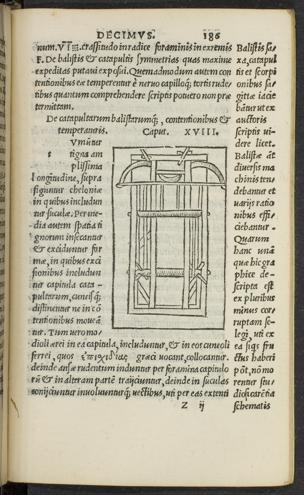 DECIMVS. 186
num. VIII. crassitudo in radice foraminis in extremis
F. De balistis & catapultis symmetrias quas maxime
expeditas putaui exposui. Quemadmodum autem con
tentionibus eæ temperentur è neruo capilloq; tortis rude/
tibus quantum comprehendere scriptis potuero non præ
termittam.
De catapultarum balistarumq; contentionibus &
temperaturis. Caput. XVIII.
s
vmūtur
tigna am
plissima
longitudine, supra
figuntur cheloniæ
in quibus includun
tur suculæ. Per me/
dia autem spatia ti
gnorum insecantur
& exciduntur for
mæ, in quibus exci
sionibus includun
tur capitula cata -
pultarum, cuneisq;
distinentur ne in cō
tentionibus moueā
tur. Tum uero mo/
dioli ærei in ea capitula, includuntur, & in eos cuneoli
ferrei, quos ἐπισχίδας græci uocant, collocantur.
deinde ansæ rudentum induntur per foramina capitulo
rū & in alteram partē traijciuntur, deinde in suculas
conijciuntur inuoluunturq; uectibus, uti per eas extenti
Z ij
Balistis sa/
xa, catapul
tis et scorpi
onibus sa/
gittæ iacie
bātur ut ex
auctoris
scriptis ui-
dere licet.
Balistæ at
diuersis ma
chinis tra/
debantur et
uarijs ratio
nibus effi/
ciebantur.
Quarum
hanc unā
quæ hic gra
phice de-
scripta est
ex pluribus
minus cor/
ruptam se/
legi, uti ex
ea siqs fru
ctus haberi
pōt, nō mo
rentur stu/
diosi cæteris
schematis